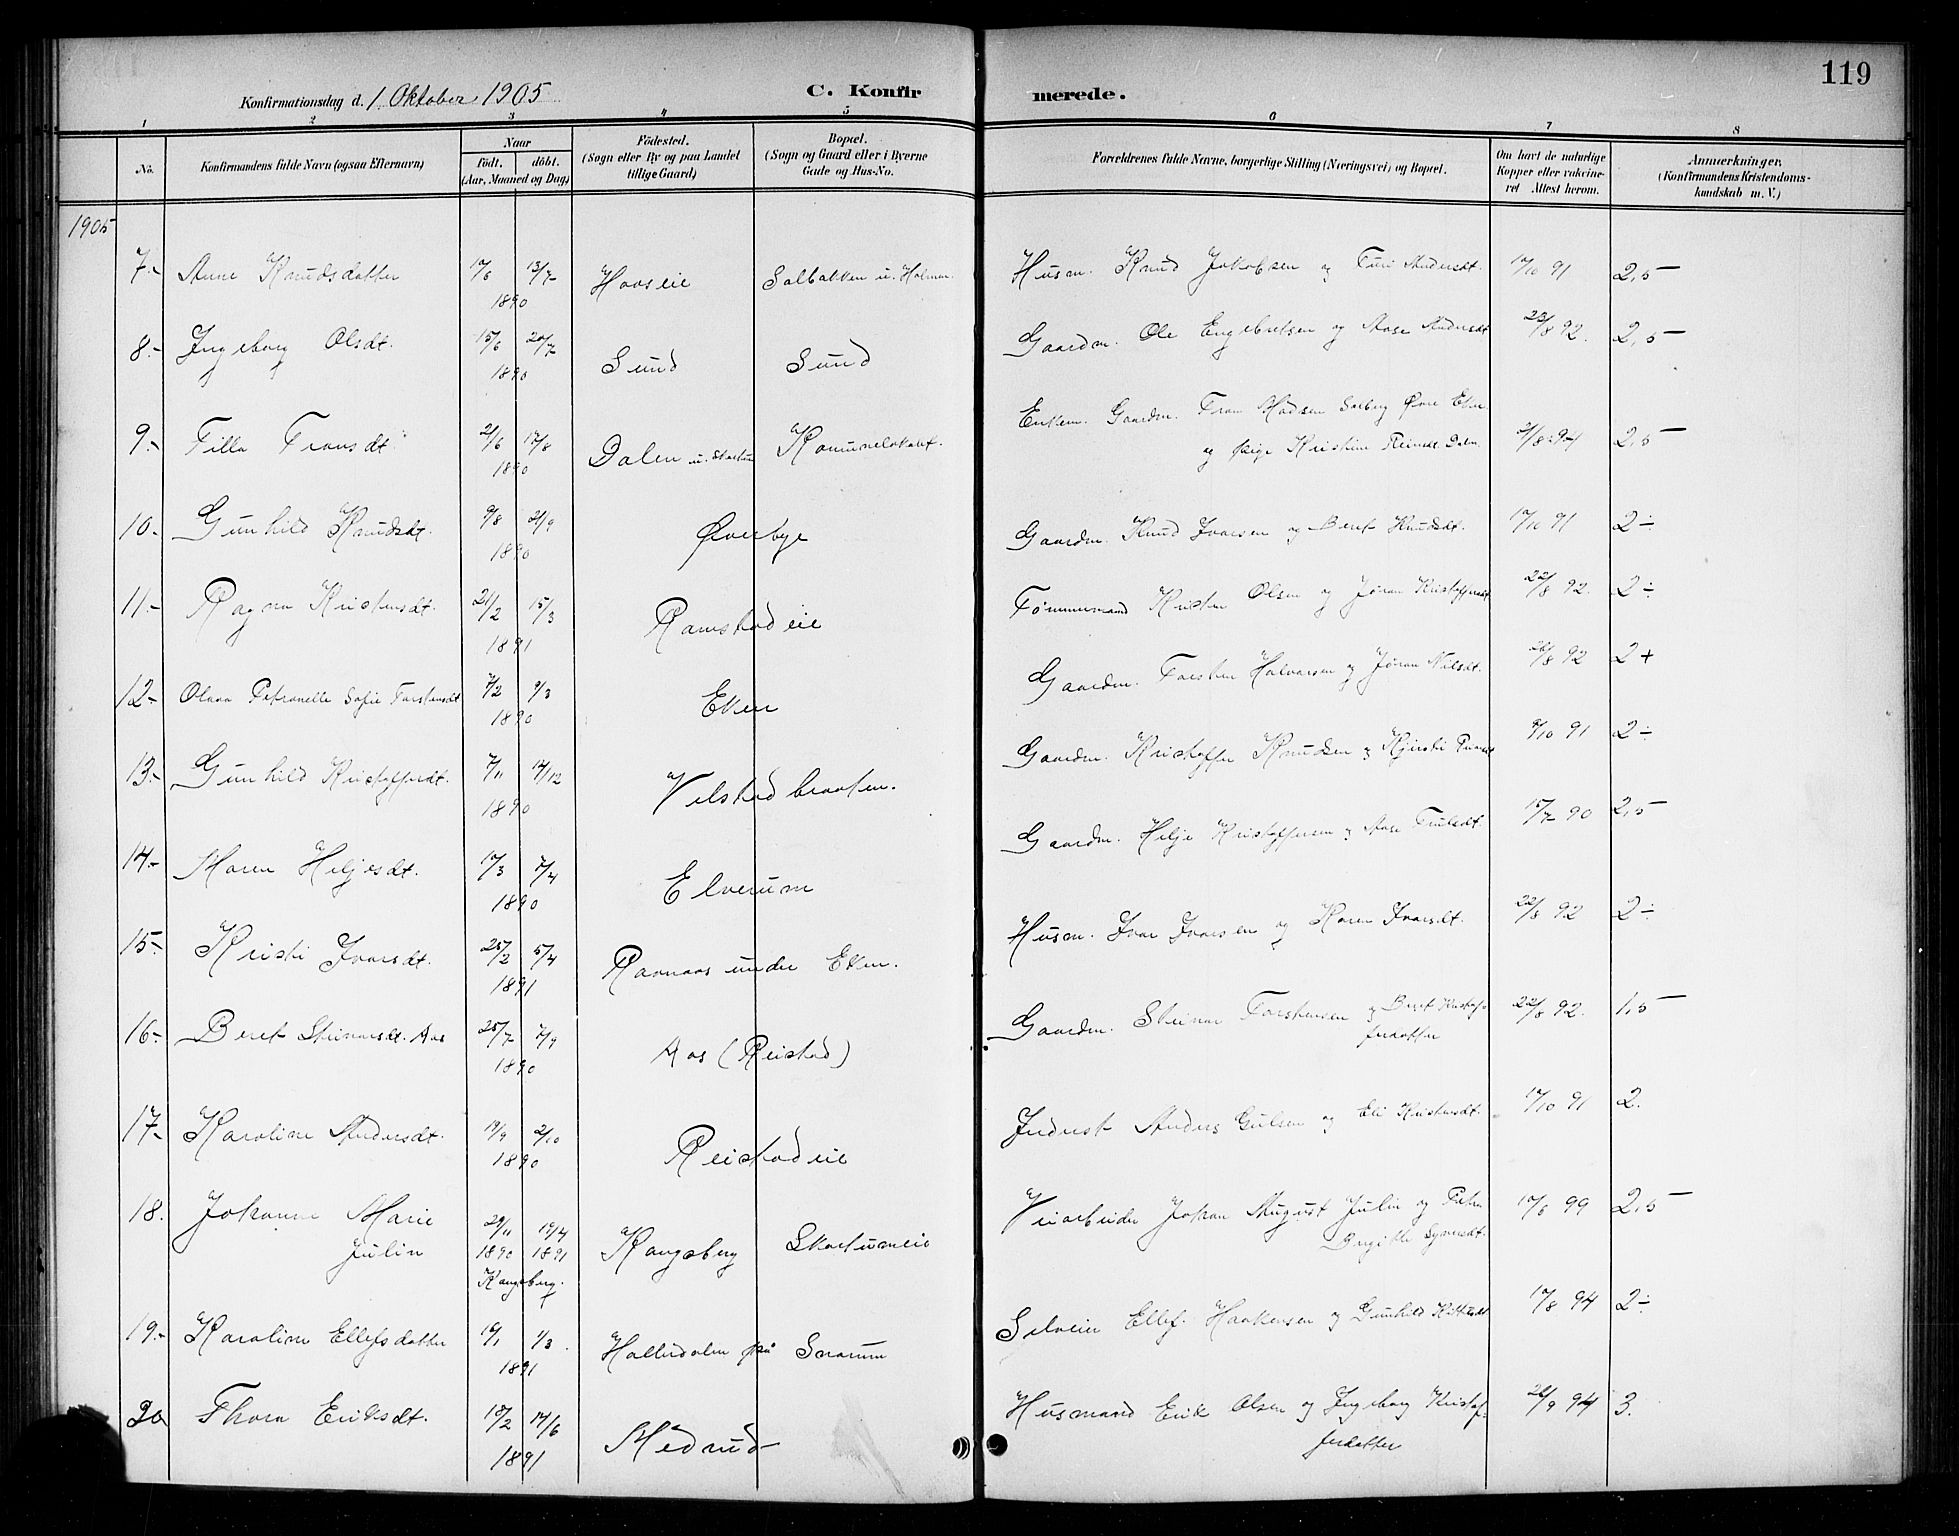 119
Konfirmationsdag d. 1 Oktober 1905
C. Konfirmerede.
1 2 3 4 5 6 7 8
No. Konfirmandens fulde Navn (ogsaa Efternavn) Naar født. døbt. (Aar, Maaned og Dag) Födested. (Sogn eller By og paa Landet tillige Gaard) Bopæl. (Sogn og Gaard eller i Byerne Gade og Hus-No. Forældrenes fulde Navne, borgerlige Stilling (Næringsvei) og Bopæl. Om havt de naturlige Kopper eller vakcineret Attest herom. Anmærkninger. (Konfirmandens Kristendomskundskab m. V.)
1905
7.- Anne Knudsdatter 17/6 13/7 1890 Haaseie Solbakken u. Holmen Husm. Knud Jakobsen og Turi Andersdt. 17/10 91 2,5
8.- Ingeborg Olsdt. 15/6 20/7 1890 Sund Sund Gaardm. Ole Engebretsen og Aase Andersdt 23/8 92. 2,5
9.- Tilla Fransdt. 2/6 17/8 1890 Dalen u. Skartum Enkem. Gaardm. Frans Madsen Solberg Øvre Eker og pige Kristine 2,5
10.- Gunhild Knudsdt. 9/8 21/9 1890 Øverbye Gaardm. Knud Ivarsen og Beret Knudsdt. 17/10 91 2÷
11.- Ragna Kristensdt. 21/2 15/3 1891 Ramstadeie Tømmermand Kristen Olsen og Jøran Kristoffersdt 22/8 92. 2÷
12.- Olava Petronelle Sofie Torstensdt 7/2 9/3 1890 Eken Gaardm. Torsten Halvorsen og Jøran Nilsdt. 26/8 92 2+
13.- Gunhild Kristoffersdt. 7/11 14/12 1890 Velstadbraaten. Gaardm. Kristoffer Knudsen og Kjersti 9/10 91 2÷
14.- Maren Heljesdt. 17/3 7/4 1890 Elverum Gaardm. Helje Kristoffersen og Aase Trulsdt. 15/7 90 2,5
15.- Kristi Ivarsdt. 25/2 5/4 1891 Ravnaas under Eken. Husm. Ivar Ivarsen og Karen Ivarsdt. 22/8 92 2÷
16.- Beret Steinarsdt. Aas 25/7 7/9 1890 Aas (Reistad) Gaardm. Steinar Torstensen og Beret Kristoffersdatter 22/8 92. 1,5
17.- Karoline Andersdt. 19/9 2/10 1890 Reistadeie Inderst Anders Gulsen og Eli Kristensdt. 17/10 91 2.
18. Johanne Marie Julin 29/11 1890 19/4 1891 Kongsberg. Kongsberg Skartumeie Veiarbeider Johan August Julin og Petra Birgitte Syversdt. 17/6 99 2,5
19.- Karoline Ellefsdatter 10/1 1/3 1891 Hallerdalen på Snarum Ellef Haakensen og Gunhild Kittelsdt 17/8 94 2÷
20 Thora Eriksdt. 18/2 14/6 1891 Medrud Husmand Erik Olsen og Ingeborg Kristoffersdatter 26/9 94 3.